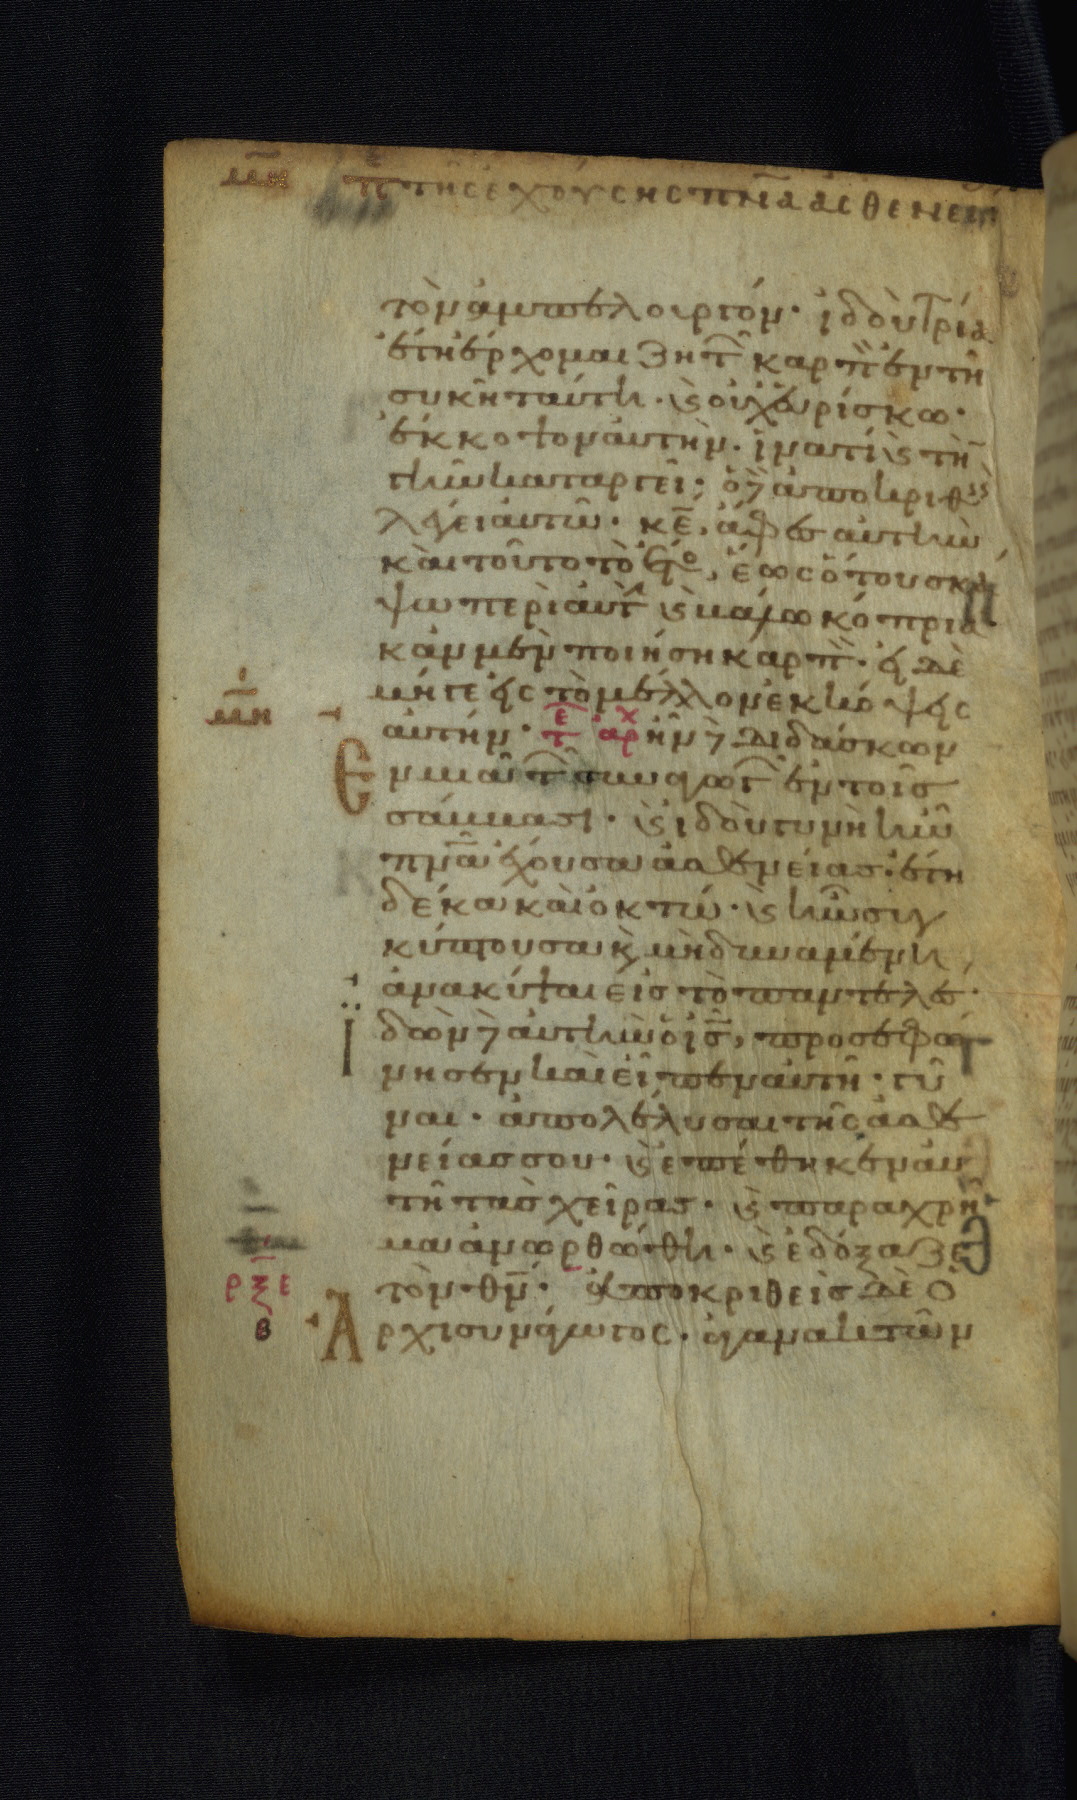 μη π τῆς ἐχούσης πν̅α ἀσθενεί
τὸν ἀμπελουργόν· ἰδοὺ τρία
ἔτη ἔρχομαι ζητ͂ καρπ̀ ἐν τῆ
συκῆ ταύτη· ϗ οὐχ εὑρίσκω·
ἔκκοψον αὐτήν· ἱνατί ϗ τὴ̅
γῆν καταργεῖ; ὁ δ̀ ἀποκριθεὶς
λέγει αὐτῶ· κε̅, ἄφες αὐτὴν
καὶ τοῦτο τὸ ἔτο, ἕως ὅτου σκά
ψω περὶ αὐτ ϗ βάλω κόπρια
κἂν μὲν ποιήση καρπ̀· εἰ δὲ
μήγε εἰς τὸ μέλλον ἐκκόψεις
μη αὐτήν· τ̅ε ἀρχ ἦν δ̀ διδάσκων
Εν μιᾶ τ͂ συναγωγ͂ ἐν τοῖς
σάββασι· ϗ ἰδοὺ γυνὴ ἦν
πν̅α ἔχουσα ἀσθενείας ἔτη
δέκα καὶ ὀκτώ· ϗ ἦν συγ
κύπτουσα ϗ μὴ δυναμένη
ἀνακύψαι εἰς τὸ παντελές·
Ϊ δὼν δ̀ αὐτὴν ὁ ις̅, προσεφώ
νησεν καὶ εἶπεν αὐτῆ· γύ
ναι· ἀπολέλυσαι τῆς ἀσθε
νείας σου· ϗ ἐπέθηκεν αὐ
τῆ τὰς χεῖρας· ϗ παραχρῆ
μα ἀνωρθώθη· ϗ ἐδόξαζε
ρξε τὸν θν̅· ἀποκριθεὶς δὲ ὁ
β Αρχισυνάγωγος· ἀγανακτῶν